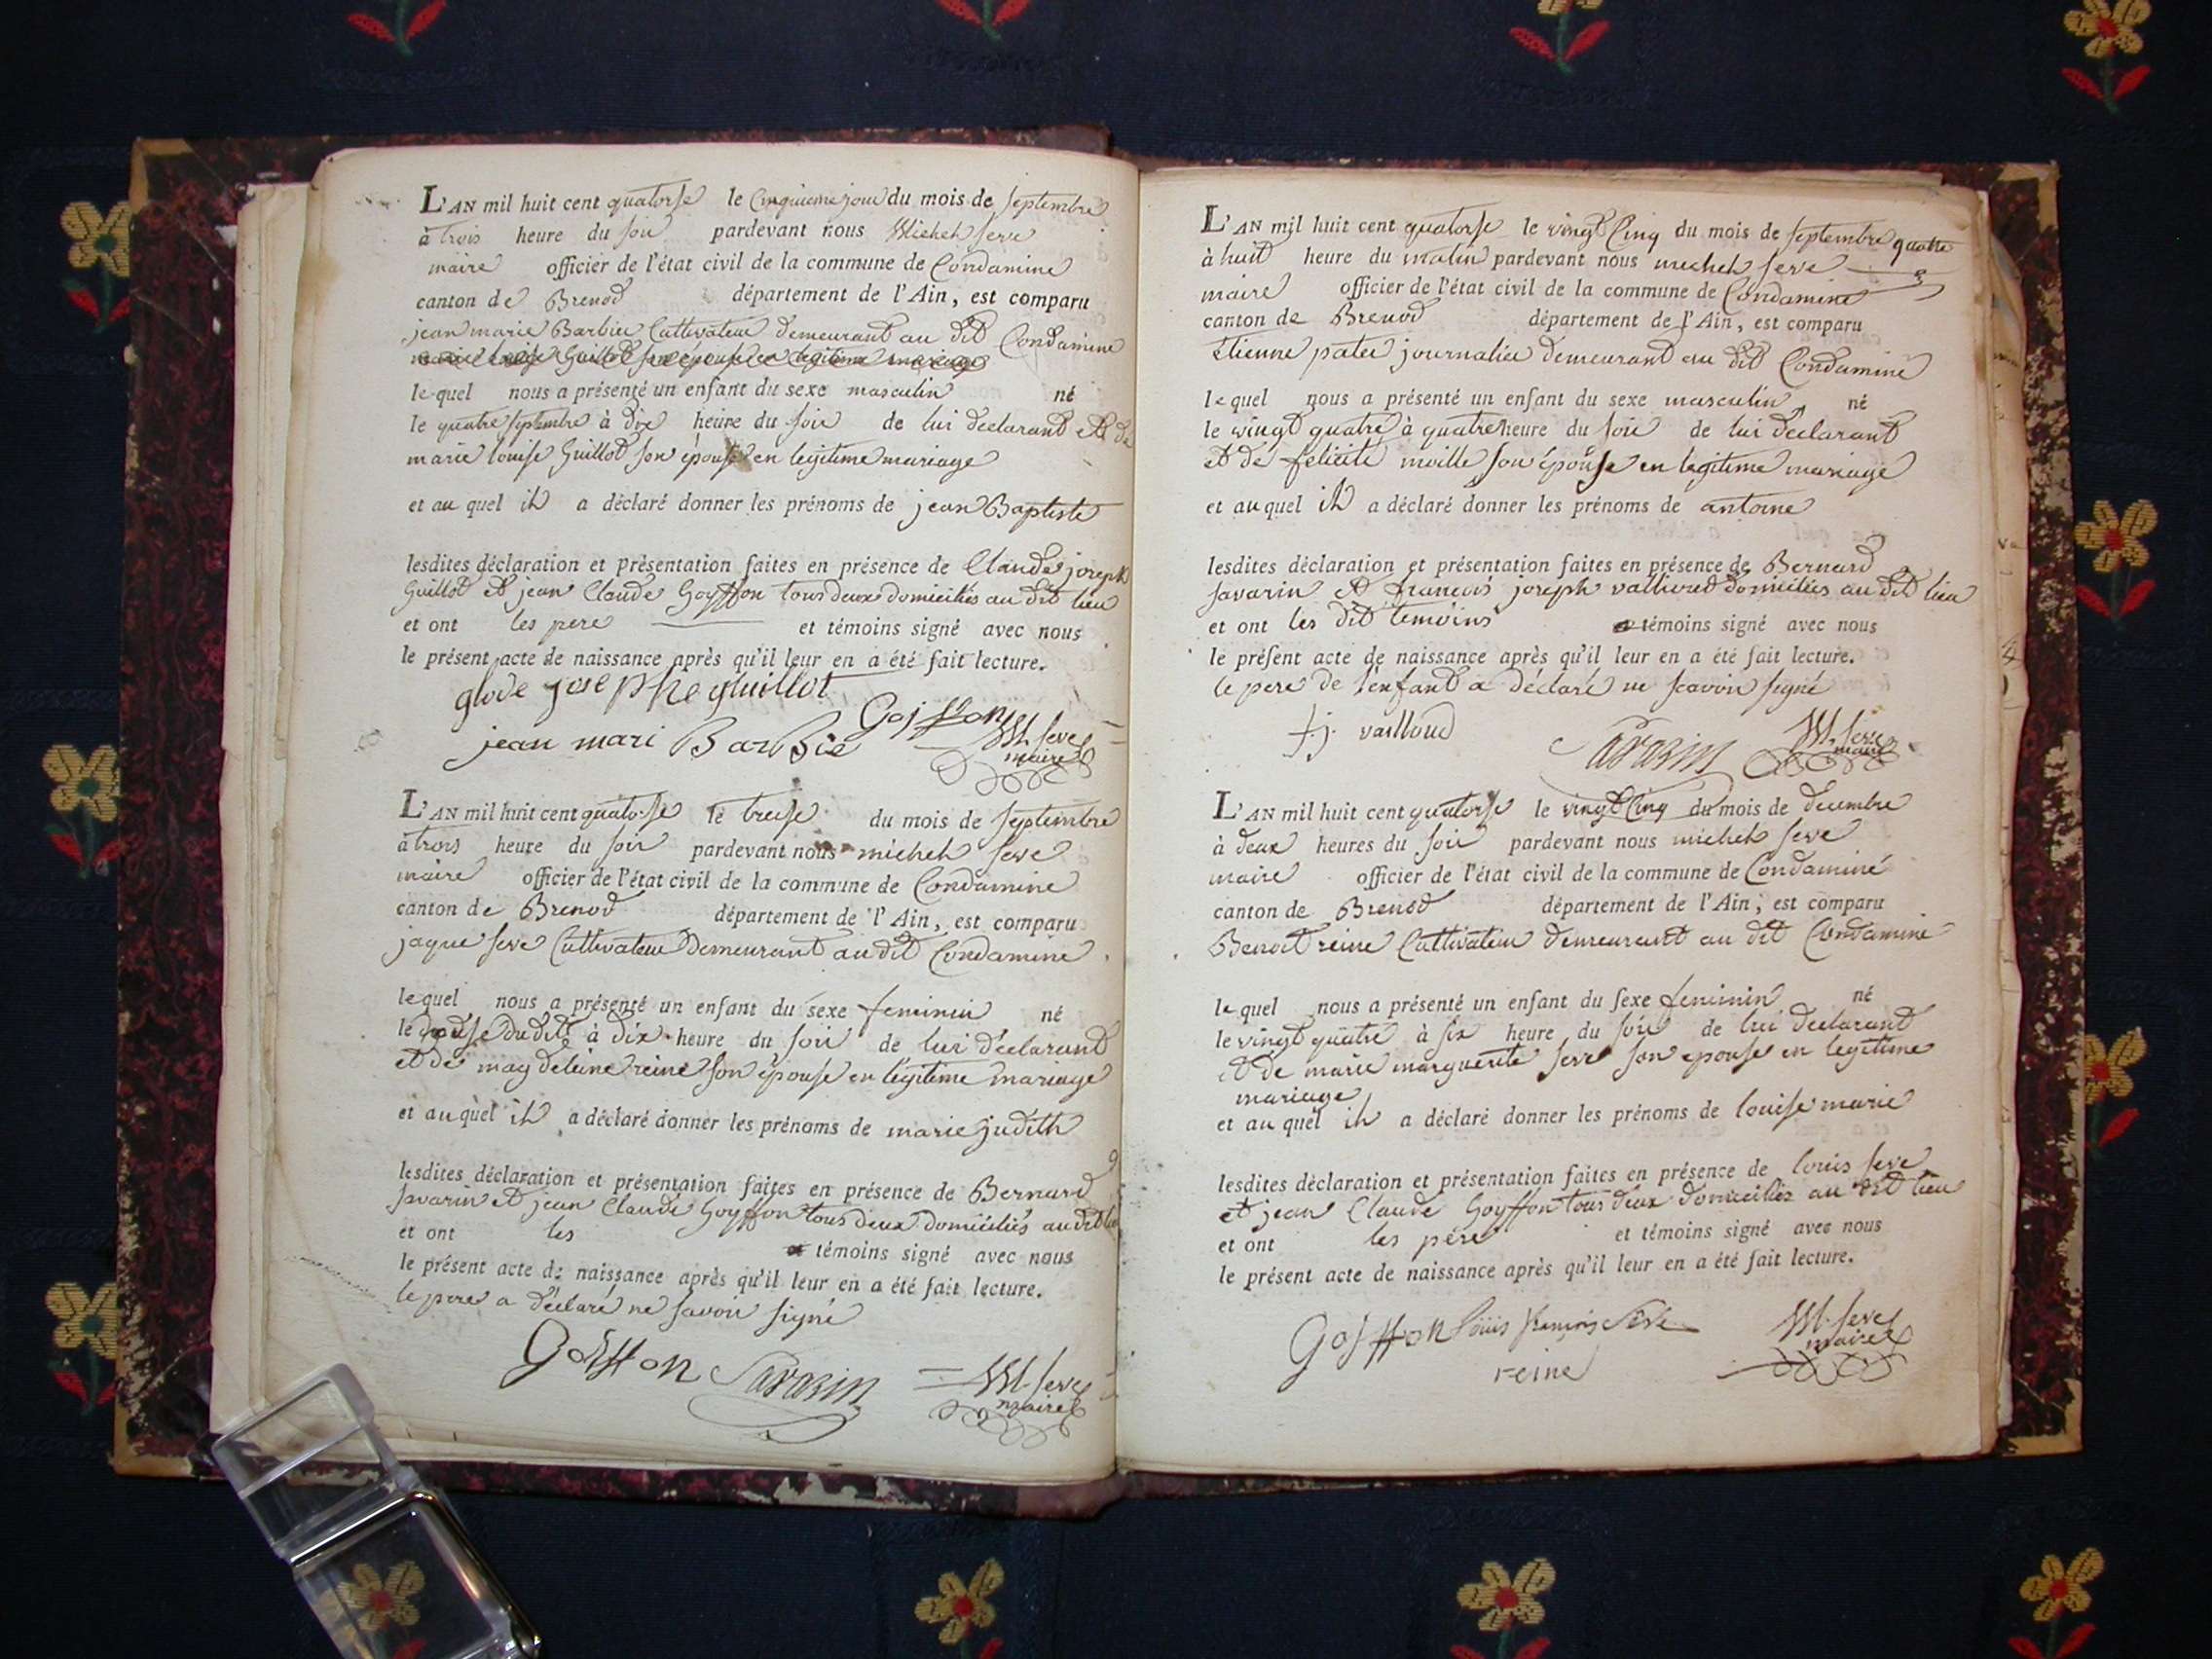 L'AN mil huit cent quatorse le Cinquieme jour du mois de septembre
à trois heure du soir pardevant nous Michel seve
maire officier de l'état civil de la commune de Condamine
canton de Brenod département de l'Ain, est comparu
jean marie Barbier Cultivateur demeurant au dit Condamine
marie louise Guillot son epouse en legitime mariage
lequel nous a présenté un enfant du sexe masculin né
le quatre septembre à dix heure du soir de lui declarant et de
marie louise Guillot son épouse en legitime mariage
et au quel il a déclaré donner les prénoms de jean Baptiste
lesdites déclaration et présentation faites en présence de Claude joseph
Guillot et jean Claude Goyffon tous deux domiciliés au dit lieu
et ont les pere et témoins signé avec nous
le présent acte de naissance après qu'il leur en a été fait lecture.
glode josephe guillot
Goiffon
jean mari Barbié
M. seve
maire
L'AN mil huit cent quatorse le treise du mois de septembre
à trois heure du soir pardevant nous michel seve
maire officier de l'état civil de la commune de Condamine
canton de Brenod département de l'Ain, est comparu
jaque seve Cultivateur demeurant au dit Condamine
lequel nous a présenté un enfant du sexe feminin né
le douse dudit à dix heure du soir de lui déclarant
et de magdeleine reine son épouse en légitime mariage
et au quel il a déclaré donner les prénoms de marie judith
lesdites déclaration et présentation faites en présence de Bernard
savarin et jean Claude Goyffon tous deux domiciliés au dit lieu
et ont les témoins signé avec nous
le présent acte de naissance après qu'il leur en a été fait lecture.
le pere a déclaré ne savoir signé
Goiffon Savarin M. seve
maire
L'AN mil huit cent quatorse le vingt Cinq du mois de septembre quatre
à huit heure du matin pardevant nous michel seve
maire officier de l'état civil de la commune de Condamine
canton de Brenod département de l'Ain, est comparu
Étienne patei journalier demeurant au dit Condamine
lequel nous a présenté un enfant du sexe masculin né
le vingt quatre à quatre heure du soir de lui déclarant
et de félicité moille son épouse en legitime mariage
et au quel il a déclaré donner les prénoms de antoine
lesdites déclaration et présentation faites en présence de Bernard
savarin et francois joseph vallioud domiciliés au dit lieu
et ont les dit temoins témoins signé avec nous
le présent acte de naissance après qu'il leur en a été fait lecture.
le pere de l'enfant a déclaré ne scavoir signé
f j. vailloud Savarin M. seve
maire
L'AN mil huit cent quatorse le vingt Cinq du mois de decembre
à deux heures du soir pardevant nous michel seve
maire officier de l'état civil de la commune de Condamine
canton de Brenod département de l'Ain, est comparu
Benoit reine Cultivateur demeurant au dit Condamine
lequel nous a présenté un enfant du sexe feminin né
le vingt quatre à six heure du soir de lui declarant
et de marie marguerite seve son epouse en legitime
mariage
et au quel il a déclaré donner les prénoms de louise marie
lesdites déclaration et présentation faites en présence de louis seve
et jean Claude Goyffon tous deux domiciliés au dit lieu
et ont les pére et témoins signé avec nous
le présent acte de naissance après qu'il leur en a été fait lecture.
Goiffon Loüis françois Seve M. seve
reine maire